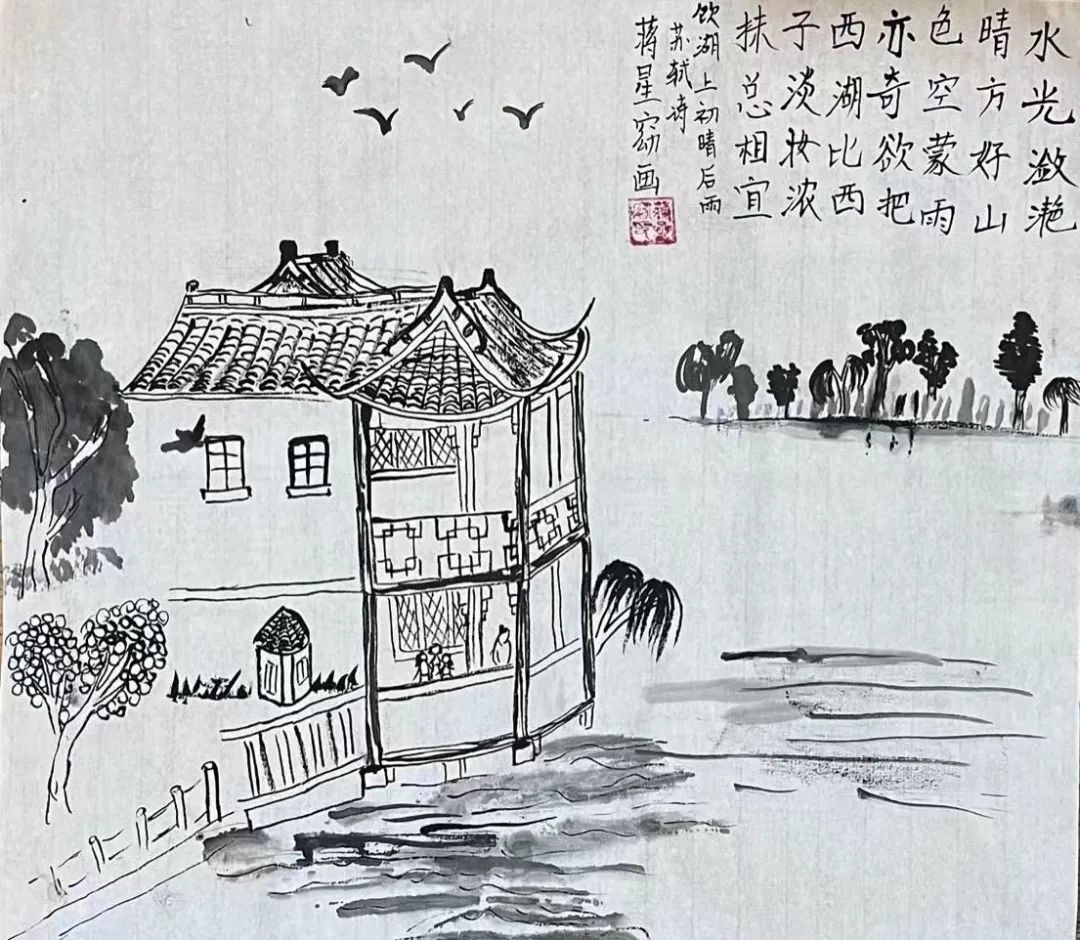 水光潋滟
晴方好山
色空蒙雨
亦奇欲把
西湖比西
子淡妆浓
抹总相宜
饮湖上初晴后雨
苏轼诗
蒋星窈画